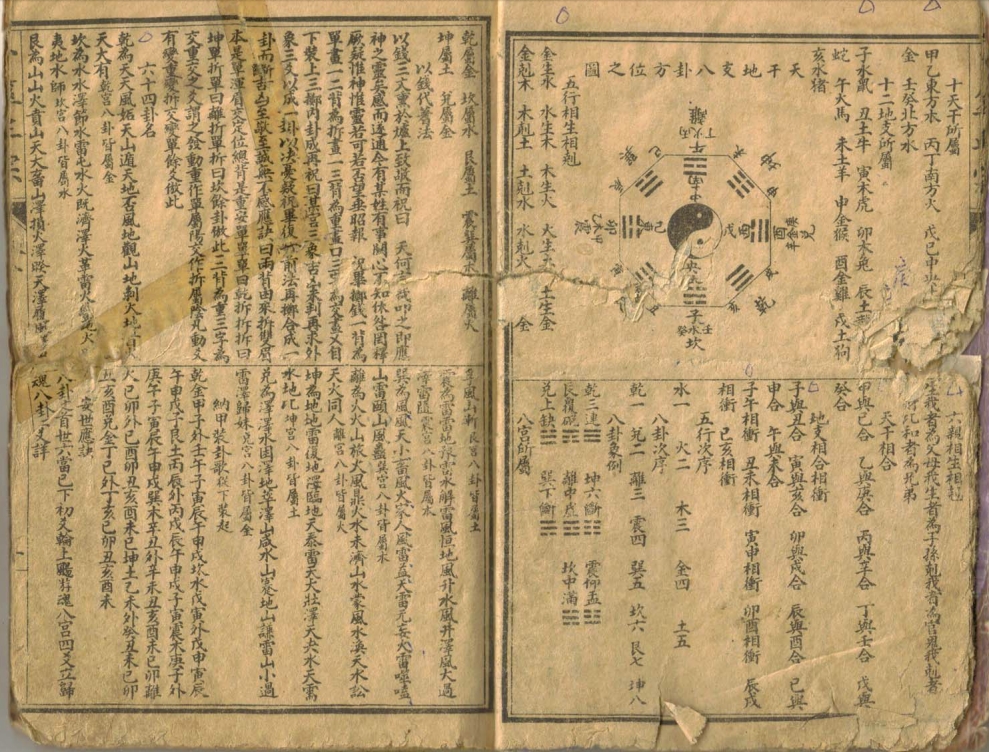 十天干所屬
甲乙東方木 丙丁南方火 戊巳中央
金 壬癸北方水
十二地支所屬
子水鼠 丑土牛 寅木虎 卯木兔 辰土
蛇 午火馬 未土羊 申金猴 酉金雞 戌土狗
亥水猪
天干地支八卦方位之圖
離
午
丁火丙
坤
兌
酉
乾
子
壬水癸
坎
震
五行相生相剋
金生水 水生木 木生火 火生土 土生金
金剋木 木剋土 土剋水 水剋火 金
六親相生相剋
我者為父母我生者為子孫剋我者為官鬼我剋者
財比和者為兄弟
天干相合
甲與己合 乙與庚合 丙與辛合 丁與壬合 戊與
癸合
地支相合相衝
子與丑合 寅與亥合 卯與戌合 辰與酉合 巳與
申合 午與未合
子午相衝 丑未相衝 寅申相衝 卯酉相衝 辰戌
相衝 巳亥相衝
五行次序
水一 火二 木三 金四 土五
八卦次序
乾一 兌二 離三 震四 巽五 坎六 艮七 坤八
八卦象例
乾三連☰ 坤六斷☷ 震仰盂☳
艮覆碗☶ 離中虛☲ 坎中滿☵
兌上缺☱ 巽下斷☴
八宮所屬
乾屬金 坎屬水 艮屬土 震巽屬木 離屬火
坤屬土 兌屬金
以錢代蓍法
以錢三文熏於爐上致敬而祝曰 天何言哉叩之即應
神之靈矣感而遂通今有某姓有事關心不知休咎罔釋
厥疑惟神惟靈若可若否望垂昭報 祝畢擲錢一背為
單畫一二背為折畫一三背為重畫口三字為交畫乂自
下裝上三擲內卦成再祝曰某宮三象吉凶未判再求外
象三爻以成一卦以決憂疑祝畢復如前法再擲合成一
卦而斷吉凶至敬至誠無不感應訣曰兩背由來折雙眉
本是單渾眉交定位總背是重安單單單曰乾折折折曰
坤單折單曰離折單折曰坎餘卦倣此三背為重三字為
交重交之爻謂之發動重作單屬陽交作折屬陰凡動爻
有變重變折交變單餘爻倣此
六十四卦名
乾為天天風姤天山遯天地否風地觀山地剝火地晋火
天大有乾宮八卦皆屬金
坎為水水澤節水雷屯水火既濟澤火革雷火豐地火
夷地水師坎宮八卦皆屬水
艮為山山火賁山天大畜山澤損火澤睽天澤履風
風山漸艮宮八卦皆屬土
震為雷雷地豫雷水解雷風恒地風升水風井澤風大過
澤雷隨震宮八卦皆屬木
巽為風風天小畜風火家人風雷益天雷无妄火雷噬嗑
山雷頤山風蠱巽宮八卦皆屬木
離為火火山旅火風鼎火水未濟山水蒙風水渙天水訟
天火同人離宮八卦皆屬火
坤為地地雷復地澤臨地天泰雷天大壯澤天夬水天需
水地比坤宮八卦皆屬土
兌為澤澤水困澤地萃澤山咸水山蹇地山謙雷山小過
雷澤歸妹兌宮八卦皆屬金
納甲裝卦歌從下裝起
乾金甲子外壬午子寅辰午申戌坎水戊寅外戊申寅辰
午申戌子艮土丙辰外丙戌辰午申戌子寅震木庚子外
庚午子寅辰午申戌巽木辛丑外辛未丑亥酉未巳卯離
火己卯外己酉卯丑亥酉未巳坤土乙未外癸丑未巳卯
丑亥酉兌金丁巳外丁亥巳卯丑亥酉未
安世應訣
八卦之首世六當已下初爻輪上颺游魂八宮四爻立歸
魂八卦三爻詳